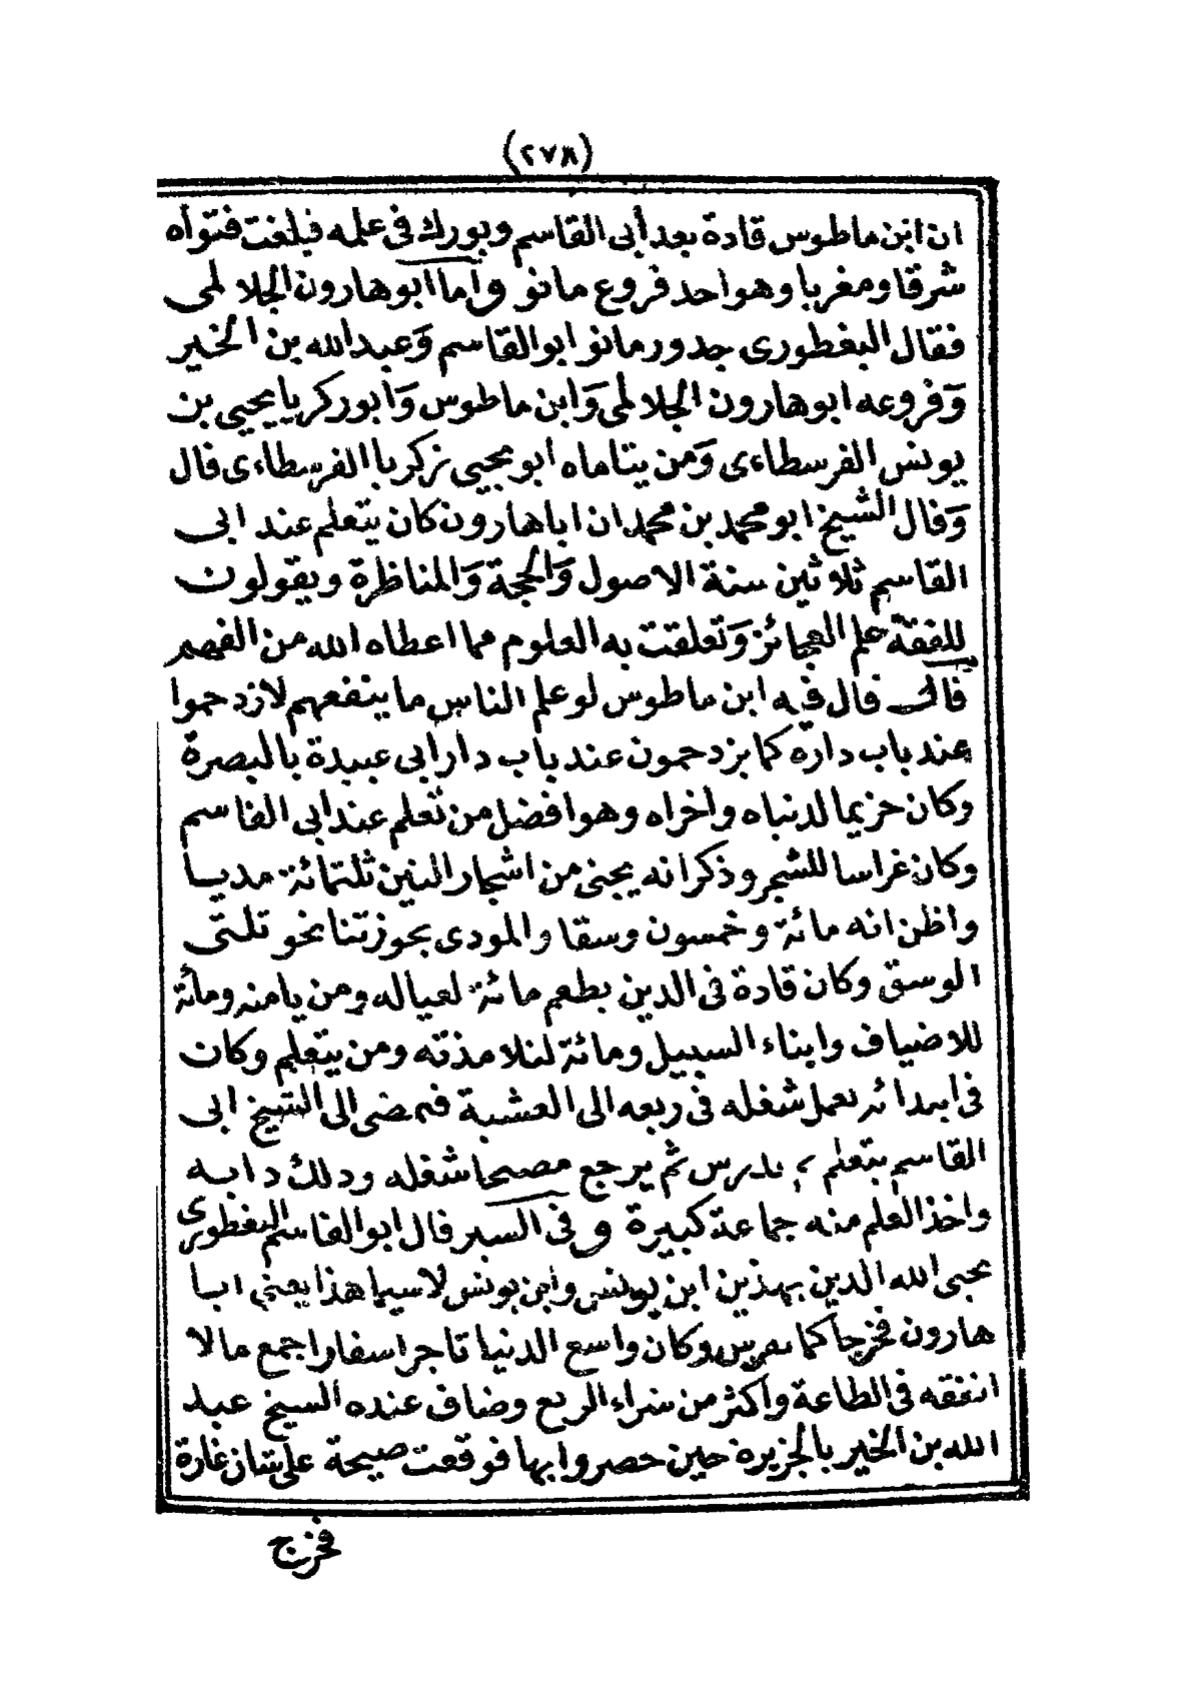 (٢٧٨)
ان ابن ماطوس قادة بعد أبى القاسم وبورك فى علمه فبلغت فتواه
شرقا ومغربا وهو احد فروع مانو واما ابو هارون الجلالمى
فقال البغطورى جدور مانو ابو القاسم وعبد الله بن الخير
وفروعه ابو هارون الجلالمى وابن ماطوس وابو زكريا يحيى بن
يونس الفرسطاءى ومن يتاماه ابو يحيى زكريا الفرسطاءى قال
وقال الشيخ ابو محمد بن محمد ان ابا هارون كان يتعلم عند ابى
القاسم ثلاثين سنة الاصول والحجة والمناظرة ويقولون
للفقة علم العجائز وتعلقت به العلوم مما اعطاه الله من الفهم
قال قال فيه ابن ماطوس لو علم الناس ما ينفعهم لازدحموا
عند باب داره كما يزدحمون عند باب دار ابى عبيدة بالبصرة
وكان حزيما لدنياه واخراه وهو افضل من تعلم عند ابى القاسم
وكان غراسا للشجر وذكر انه يجنى من اشجار التين ثلثمائة مديا
واظن انه مائة وخمسون وسقا والمودى بحوزتنا نحو ثلثى
الوسق وكان قادة فى الدين يطعم مائة لعياله ومن يامنه ومائة
للاضياف وابناء السبيل ومائة لتلامذته ومن يتعلم وكان
فى ابتدائه يعمل شغله فى ربعه الى العشية فيمضى الى الشيخ ابى
القاسم يتعلم يدرس ثم يرجع مصبحا شغله وذلك دابه
واخذ العلم منه جماعة كبيرة وفى السير قال ابو القاسم البغطورى
يحيى الله الدين بهذين ابن يونس وابن يونس لا سيما هذا يعنى ابا
هارون فخرجا كما وكان واسع الدنيا تاجر اسفارا جمع مالا
انفقه فى الطاعة واكثر من شراء الربع وضاف عنده الشيخ عبد
الله بن الخير بالجزيرة حين حصروا بها فوقعت صيحة على شان غارة
فخرج